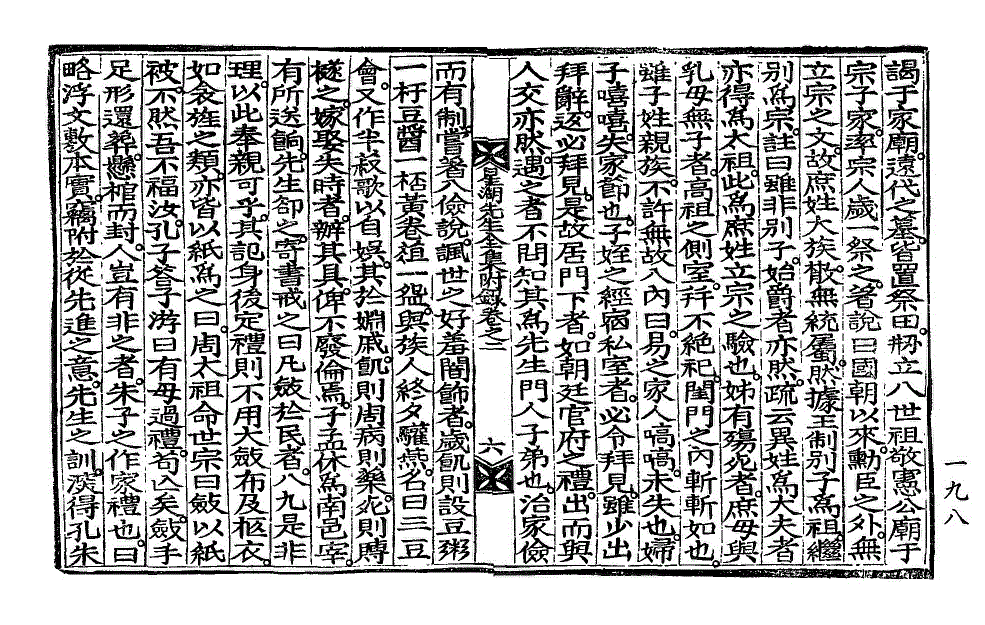 謁于家廟遠代之墓皆置祭田刱立八世祖敬憲公廟于
宗子家率宗人歲一祭之著說曰國朝以來勳臣之外無
立宗之文故庶姓大族散無統屬然據王制別子爲祖繼
別爲宗註曰雖非別子始爵者亦然疏云異姓爲大夫者
亦得爲太祖此爲庶姓立宗之驗也姊有殤死者庶母與
乳母無子者高祖之側室幷不絶祀閨門之內斬斬如也
雖子姓親族不許無故入內曰易之家人嗃嗃未失也婦
子嘻嘻失家節也子姪之經宿私室者必令拜見雖少出
拜辭返必拜見是故居門下者如朝廷官府之禮出而與
人交亦然遇之者不問知其爲先生門人子弟也治家儉
星湖先生全集附錄卷之二
六
而有制嘗著八儉說諷世之好羞闇飾者歲飢則設豆粥
一杅豆醬一桮黃卷菹一盌與族人終夕驩燕名曰三豆
會又作半菽歌以自娛其於婣戚飢則周病則藥死則賻
襚之嫁娶失時者辦其具俾不廢倫焉子孟休爲南邑宰
有所送餉先生卻之寄書戒之曰凡斂於民者八九是非
理以此奉親可乎其記身後定禮則不用大斂布及柩衣
如衾旌之類亦皆以紙爲之曰周太祖命世宗曰斂以紙
被不然吾不福汝孔子答子游曰有毋過禮苟亾矣斂手
足形還葬懸棺而封人豈有非之者朱子之作家禮也曰
略浮文敷本實竊附於從先進之意先生之訓深得孔朱
一九八